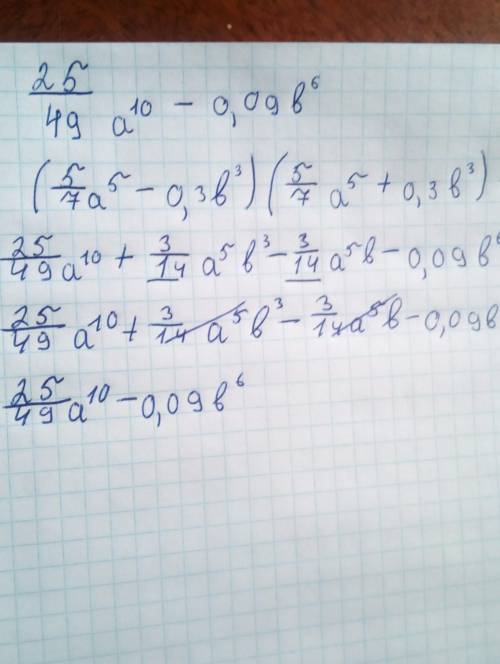 25/49 a¹⁰ - 0,09в⁶
(5/7 a⁵ - 0,3в³)(5/7 a⁵ + 0,3в³)
25/49 a¹⁰ + 3/14 a⁵в³ - 3/14 a⁵в - 0,09в⁶
25/49 a¹⁰ + 3/14 a⁵в³ - 3/14 a⁵в - 0,09в
25/49 a¹⁰ - 0,09в⁶